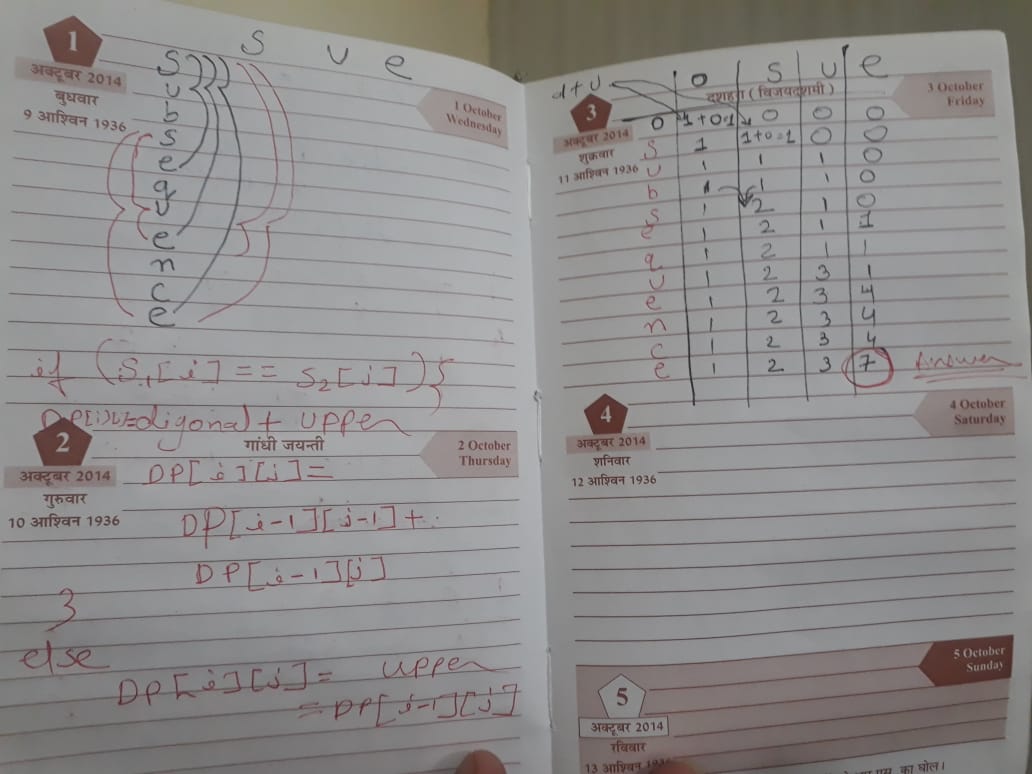 S U e
1
अक्टूबर 2014
बुधवार
9 आश्विन 1936
1 October
Wednesday
S
u
b
s
e
q
u
e
n
c
e
if (S1[i] == S2[j]) {
DP[i][j]=digonal + upper
2
अक्टूबर 2014
गुरुवार
10 आश्विन 1936
गांधी जयन्ती
2 October
Thursday
DP[i][j]=
DP[i-1][j-1] +
DP[i-1][j]
}
else
DP[i][j]= upper
=DP[i-1][j]
d+U 0 S U e
3
अक्टूबर 2014
शुक्रवार
11 आश्विन 1936
दशहरा (विजयदशमी)
3 October
Friday
0 1+0=1 0 0 0
S 1 1+0=1 0 0
U 1 1 1 0
b 1 1 1 0
S 1 2 1 0
e 1 2 1 1
q 1 2 1 1
U 1 2 3 1
e 1 2 3 4
n 1 2 3 4
c 1 2 3 4
e 1 2 3 7 Answer
4
अक्टूबर 2014
शनिवार
12 आश्विन 1936
4 October
Saturday
5
अक्टूबर 2014
रविवार
13 आश्विन 1936
5 October
Sunday
का घोल।